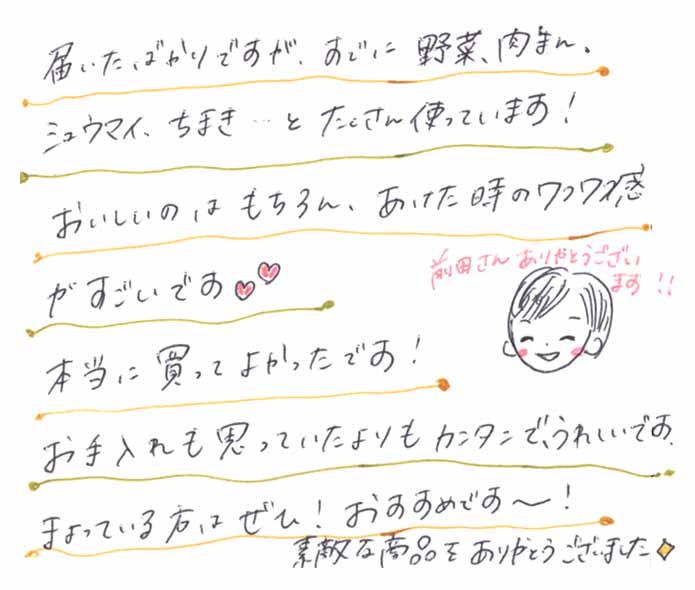 届いたばかりですが、すでに 野菜、肉まん、
シュウマイ、ちまき…と たくさん使っています！
おいしいのは もちろん、あけた時のワクワク感
がすごいです
前田さん ありがとうござい
ます！！
本当に買ってよかったです！
お手入れも思っていたよりもカンタンで、うれしいです。
まよっている方は ぜひ！おすすめです〜！
素敵な商品を ありがとうございました